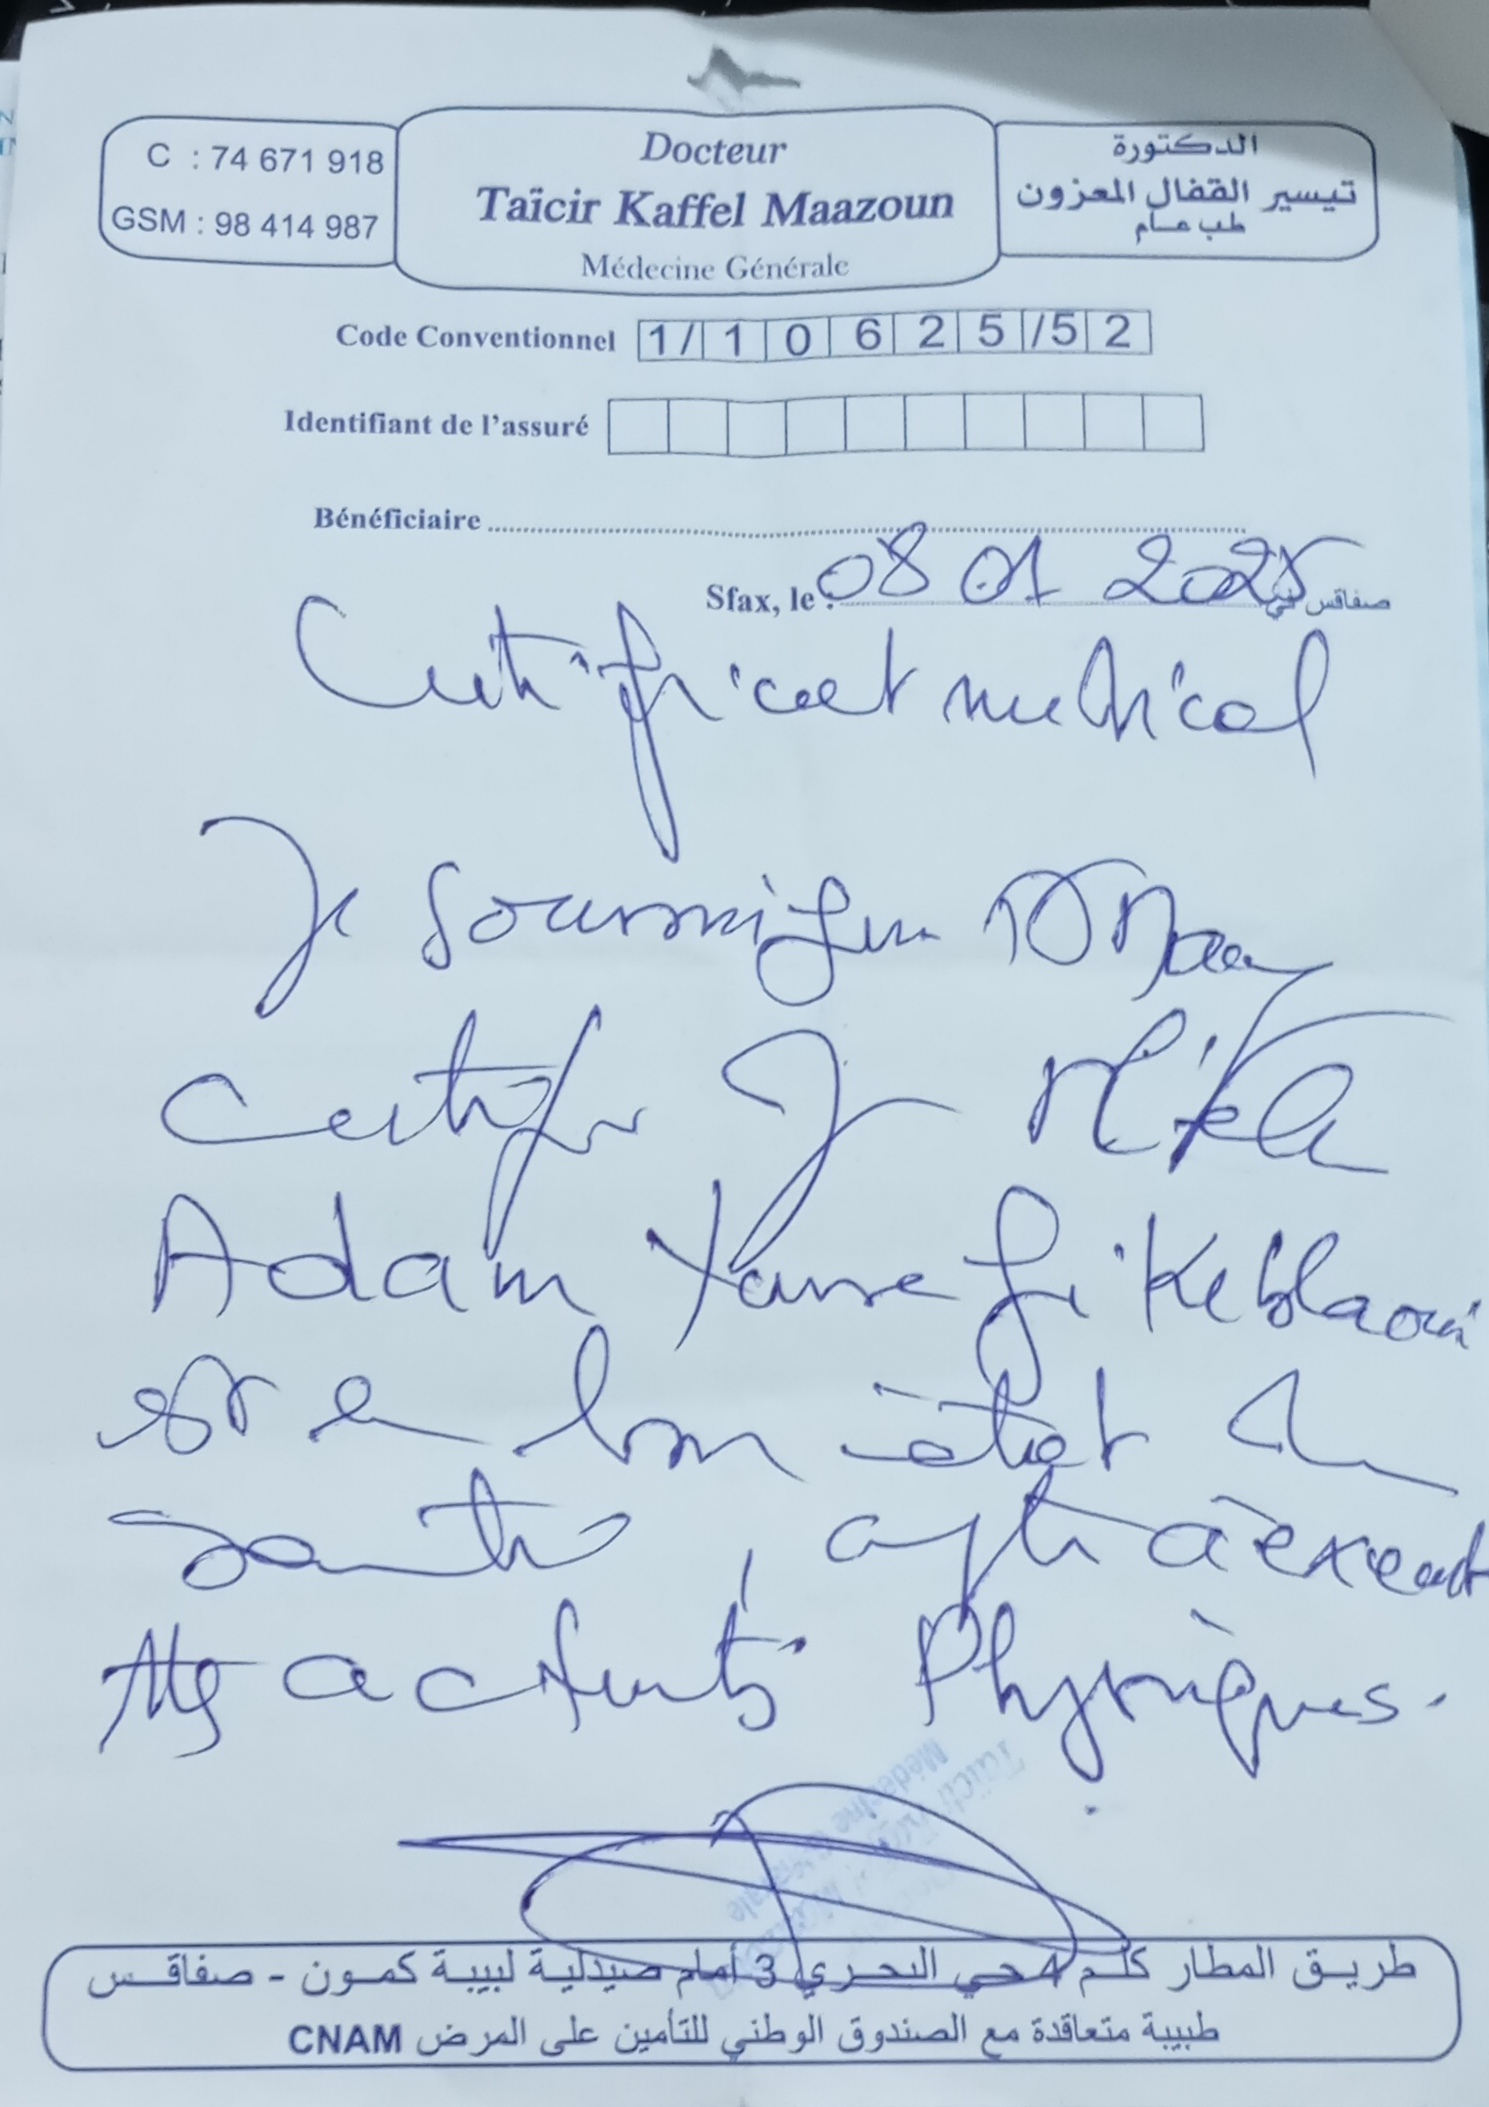 C : 74 671 918
GSM : 98 414 987
Docteur
Taïcir Kaffel Maazoun
Médecine Générale
الدكتورة
تيسير القفال المعزون
طب عام
Code Conventionnel 1/10625/52
Identifiant de l'assuré
Bénéficiaire
Sfax, le : 08 01 2025 صفاقس في
Certificat medical
Je soussigne Dr
certifie
Adam Keblaoui
est en bon état de
santé, apt à
activités Physiques.
طريق المطار كلم 4 حي البحري 3 أمام صيدلية لبيبة كمون - صفاقس
طبيبة متعاقدة مع الصندوق الوطني للتأمين على المرض CNAM